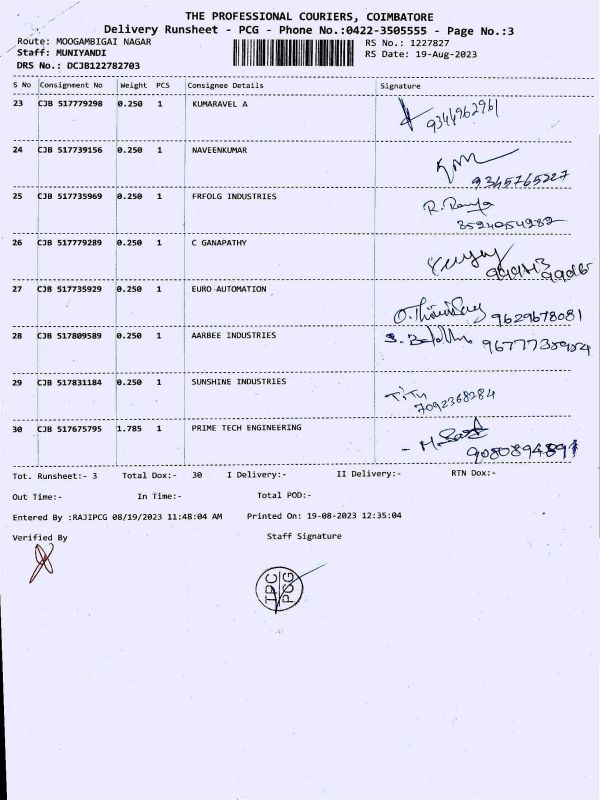 THE PROFESSIONAL COURIERS, COIMBATORE
Delivery Runsheet - PCG - Phone No.:0422-3505555 - Page No.:3
Route: MOOGAMBIGAI NAGAR RS No.: 1227827
Staff: MUNIYANDI RS Date: 19-Aug-2023
DRS No.: DCJB122782703
S No Consignment No Weight PCS Consignee Details Signature
23 CJB 517779298 0.250 1 KUMARAVEL A
9344962961
24 CJB 517739156 0.250 1 NAVEENKUMAR
9345765227
25 CJB 517735969 0.250 1 FRFOLG INDUSTRIES
R.
8524054282
26 CJB 517779289 0.250 1 C GANAPATHY
27 CJB 517735929 0.250 1 EURO AUTOMATION
9629678081
28 CJB 517809589 0.250 1 AARBEE INDUSTRIES
29 CJB 517831184 0.250 1 SUNSHINE INDUSTRIES
7092368284
30 CJB 517675795 1.785 1 PRIME TECH ENGINEERING
Tot. Runsheet:- 3 Total Dox:- 30 I Delivery:- II Delivery:- RTN Dox:-
Out Time:- In Time:- Total POD:-
Entered By :RAJIPCG 08/19/2023 11:48:04 AM Printed On: 19-08-2023 12:35:04
Verified By Staff Signature